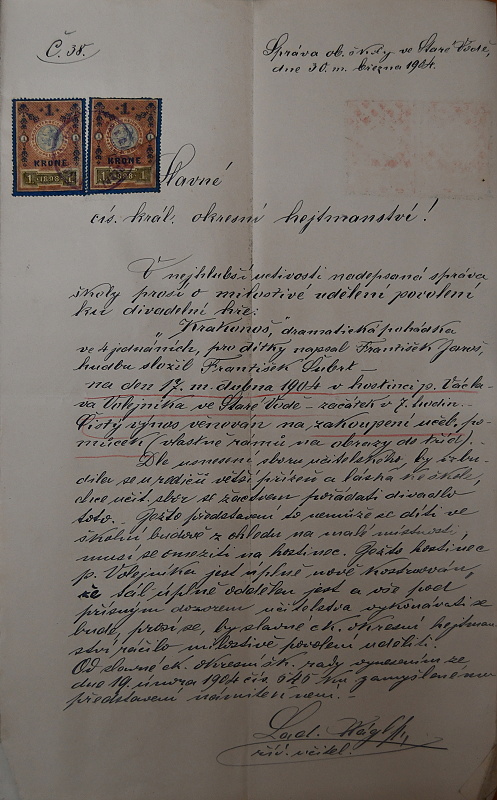 Č. 38.
Správa ob. školy ve Staré Vodě,
dne 30. m. března 1904.
1 1
KRONE KRONE
1 1898 1 1898
Slavné
cís. král. okresní hejtmanství!
V nejhlubší uctivosti nadepsaná správa
školy prosí o milostivé udělení povolení
ku divadelní hře:
"Krakonoš", dramatická pohádka
ve 4 jednáních, pro dítky napsal František
hudbu složil František Šubrt -
na den 17. m. dubna 1904 v hostinci p. Václa-
va Volejníka ve Staré Vodě - začátek v 7. hodin. -
Čistý výnos věnován na zakoupení učeb. po-
můcek (vlastně rámů na obrazy do tříd). -
Dle usnesení sboru učitelského, by vzbu-
dila se u rodičů větší přízeň a láska ke škole,
chce učit. sbor se žactvem pořádati divadlo
toto. - Ježto představení to nemůže se díti ve
školní budově z ohledu na malé místnosti,
musí se omeziti na hostinec. Ježto hostinec
p. Volejníka jest úplně nově
že sál úplně oddělen jest a vše pod
přísným dozorem učitelstva vykonávati se
bude, prosí se, by slavné c.k. okresní hejtman-
ství ráčilo milostivě povolení uděliti.
Od slavné c.k. okresní šk. rady vynesením ze
dne 19. února 1904 čís. 645 ku zamýšlenému
představení námitek není. -
Lad.
říd. učitel.